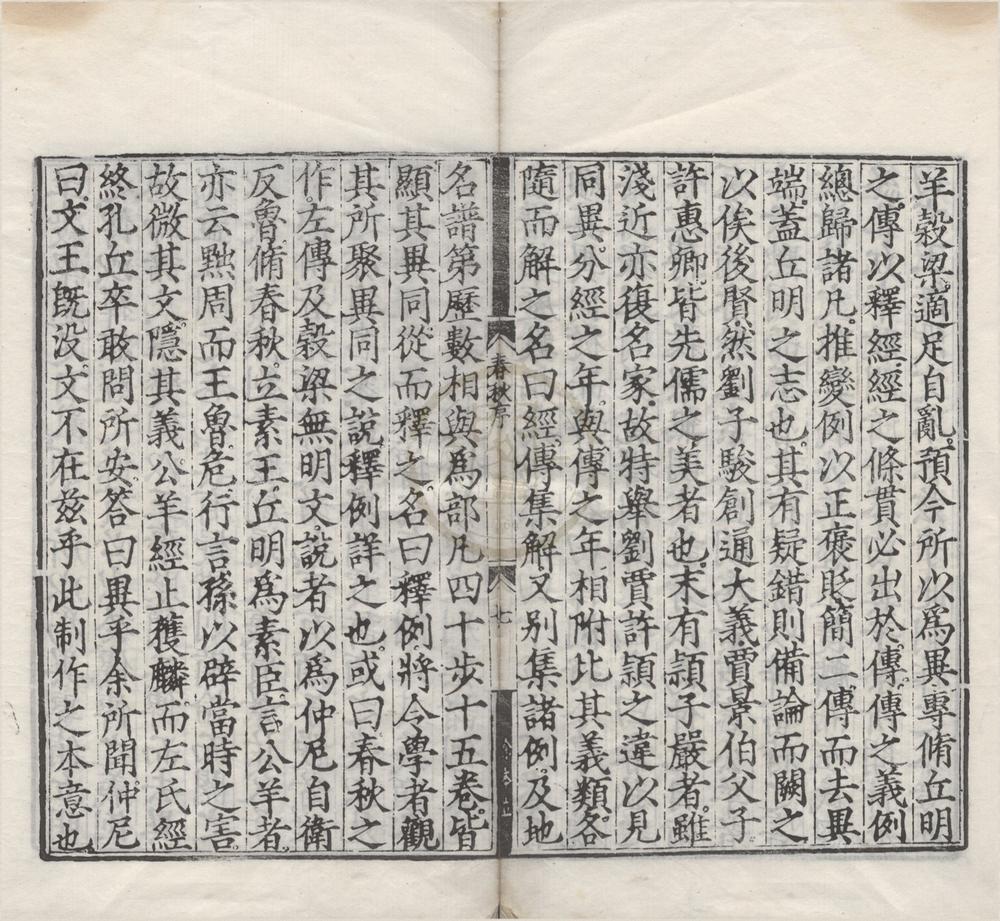 羊穀梁適足自亂預今所以爲異專脩丘明
之傳以釋經經之條貫必出於傳傳之義例
緫歸諸凡推變例以正褒貶簡二傳而去異
端蓋丘明之志也其有疑錯則備論而闕之
以俟後賢然劉子駿創通大義賈景伯父子
許惠卿皆先儒之美者也末有潁子嚴者雖
淺近亦復名家故特舉劉賈許潁之違以見
同異分經之年與傳之年相附比其義類各
隨而解之名曰經傳集解又别集諸例及地
春秋序
七
名譜第曆數相與爲部凡四十步十五卷皆
顯其異同從而釋之名曰釋例將令學者觀
其所聚異同之說釋例詳之也或曰春秋之
作左傳及穀梁無明文說者以爲仲尼自衛
反魯脩春秋立素王丘明爲素臣言公羊者
亦云黜周而王魯危行言孫以辟當時之害
故微其文隱其義公羊經止獲麟而左氏經
終孔丘卒敢問所安答曰異乎余所聞仲尼
曰文王既没文不在兹乎此制作之本意也